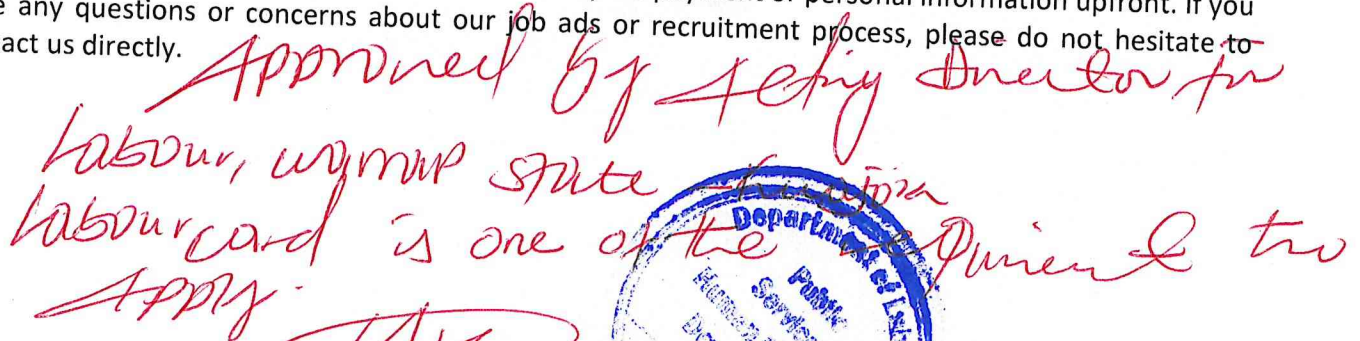 any questions or concerns about our job ads or recruitment process, please do not hesitate to
act us directly.
Approved by Acting Director for
Labour, warrap state - kuajok
Labour card is one of the requirement to
Apply.
Department of Lab
Public
Service
Human